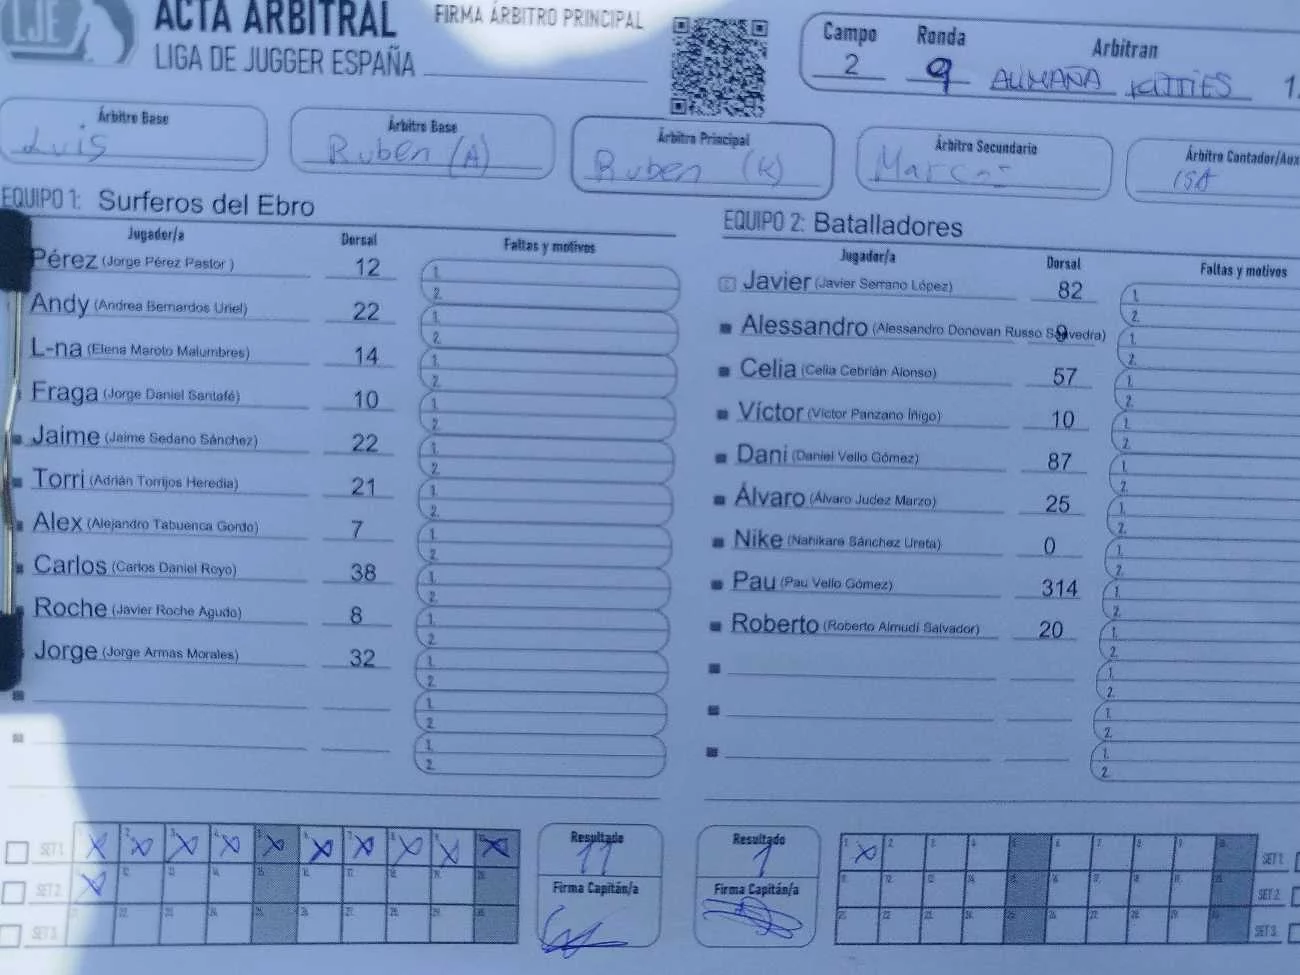 LJE
ACTA ARBITRAL
LIGA DE JUGGER ESPAÑA
FIRMA ÁRBITRO PRINCIPAL
Campo Ronda Arbitran
2 9 ALIMAÑA KITTIES
Árbitro Base
Luis
Árbitro Base
Ruben (A)
Árbitro Principal
Ruben (K)
Árbitro Secundario
Marcos
Árbitro Contador/Aux
ISA
EQUIPO 1: Surferos del Ebro
Jugador/a Dorsal Faltas y motivos
Pérez (Jorge Pérez Pastor ) 12 1. 2.
Andy (Andrea Bernardos Uriel) 22 1. 2.
L-na (Elena Maroto Malumbres) 14 1. 2.
Fraga (Jorge Daniel Santafé) 10 1. 2.
Jaime (Jaime Sedano Sánchez) 22 1. 2.
Torri (Adrián Torrijos Heredia) 21 1. 2.
Alex (Alejandro Tabuenca Gordo) 7 1. 2.
Carlos (Carlos Daniel Royo) 38 1. 2.
Roche (Javier Roche Agudo) 8 1. 2.
Jorge (Jorge Armas Morales) 32 1. 2.
1. 2.
1. 2.
EQUIPO 2: Batalladores
Jugador/a Dorsal Faltas y motivos
Javier (Javier Serrano López) 82 1. 2.
Alessandro (Alessandro Donovan Russo Saavedra) 9 1. 2.
Celia (Celia Cebrián Alonso) 57 1. 2.
Víctor (Víctor Panzano Íñigo) 10 1. 2.
Dani (Daniel Vello Gómez) 87 1. 2.
Álvaro (Álvaro Judez Marzo) 25 1. 2.
Nike (Nahikare Sánchez Ureta) 0 1. 2.
Pau (Pau Vello Gómez) 314 1. 2.
Roberto (Roberto Almudí Salvador) 20 1. 2.
1. 2.
1. 2.
1. 2.
SET 1. X X X X X X X X X X
SET 2. X
SET 3.
Resultado
11
Firma Capitán/a
Resultado
1
Firma Capitán/a
X SET 1.
SET 2.
SET 3.